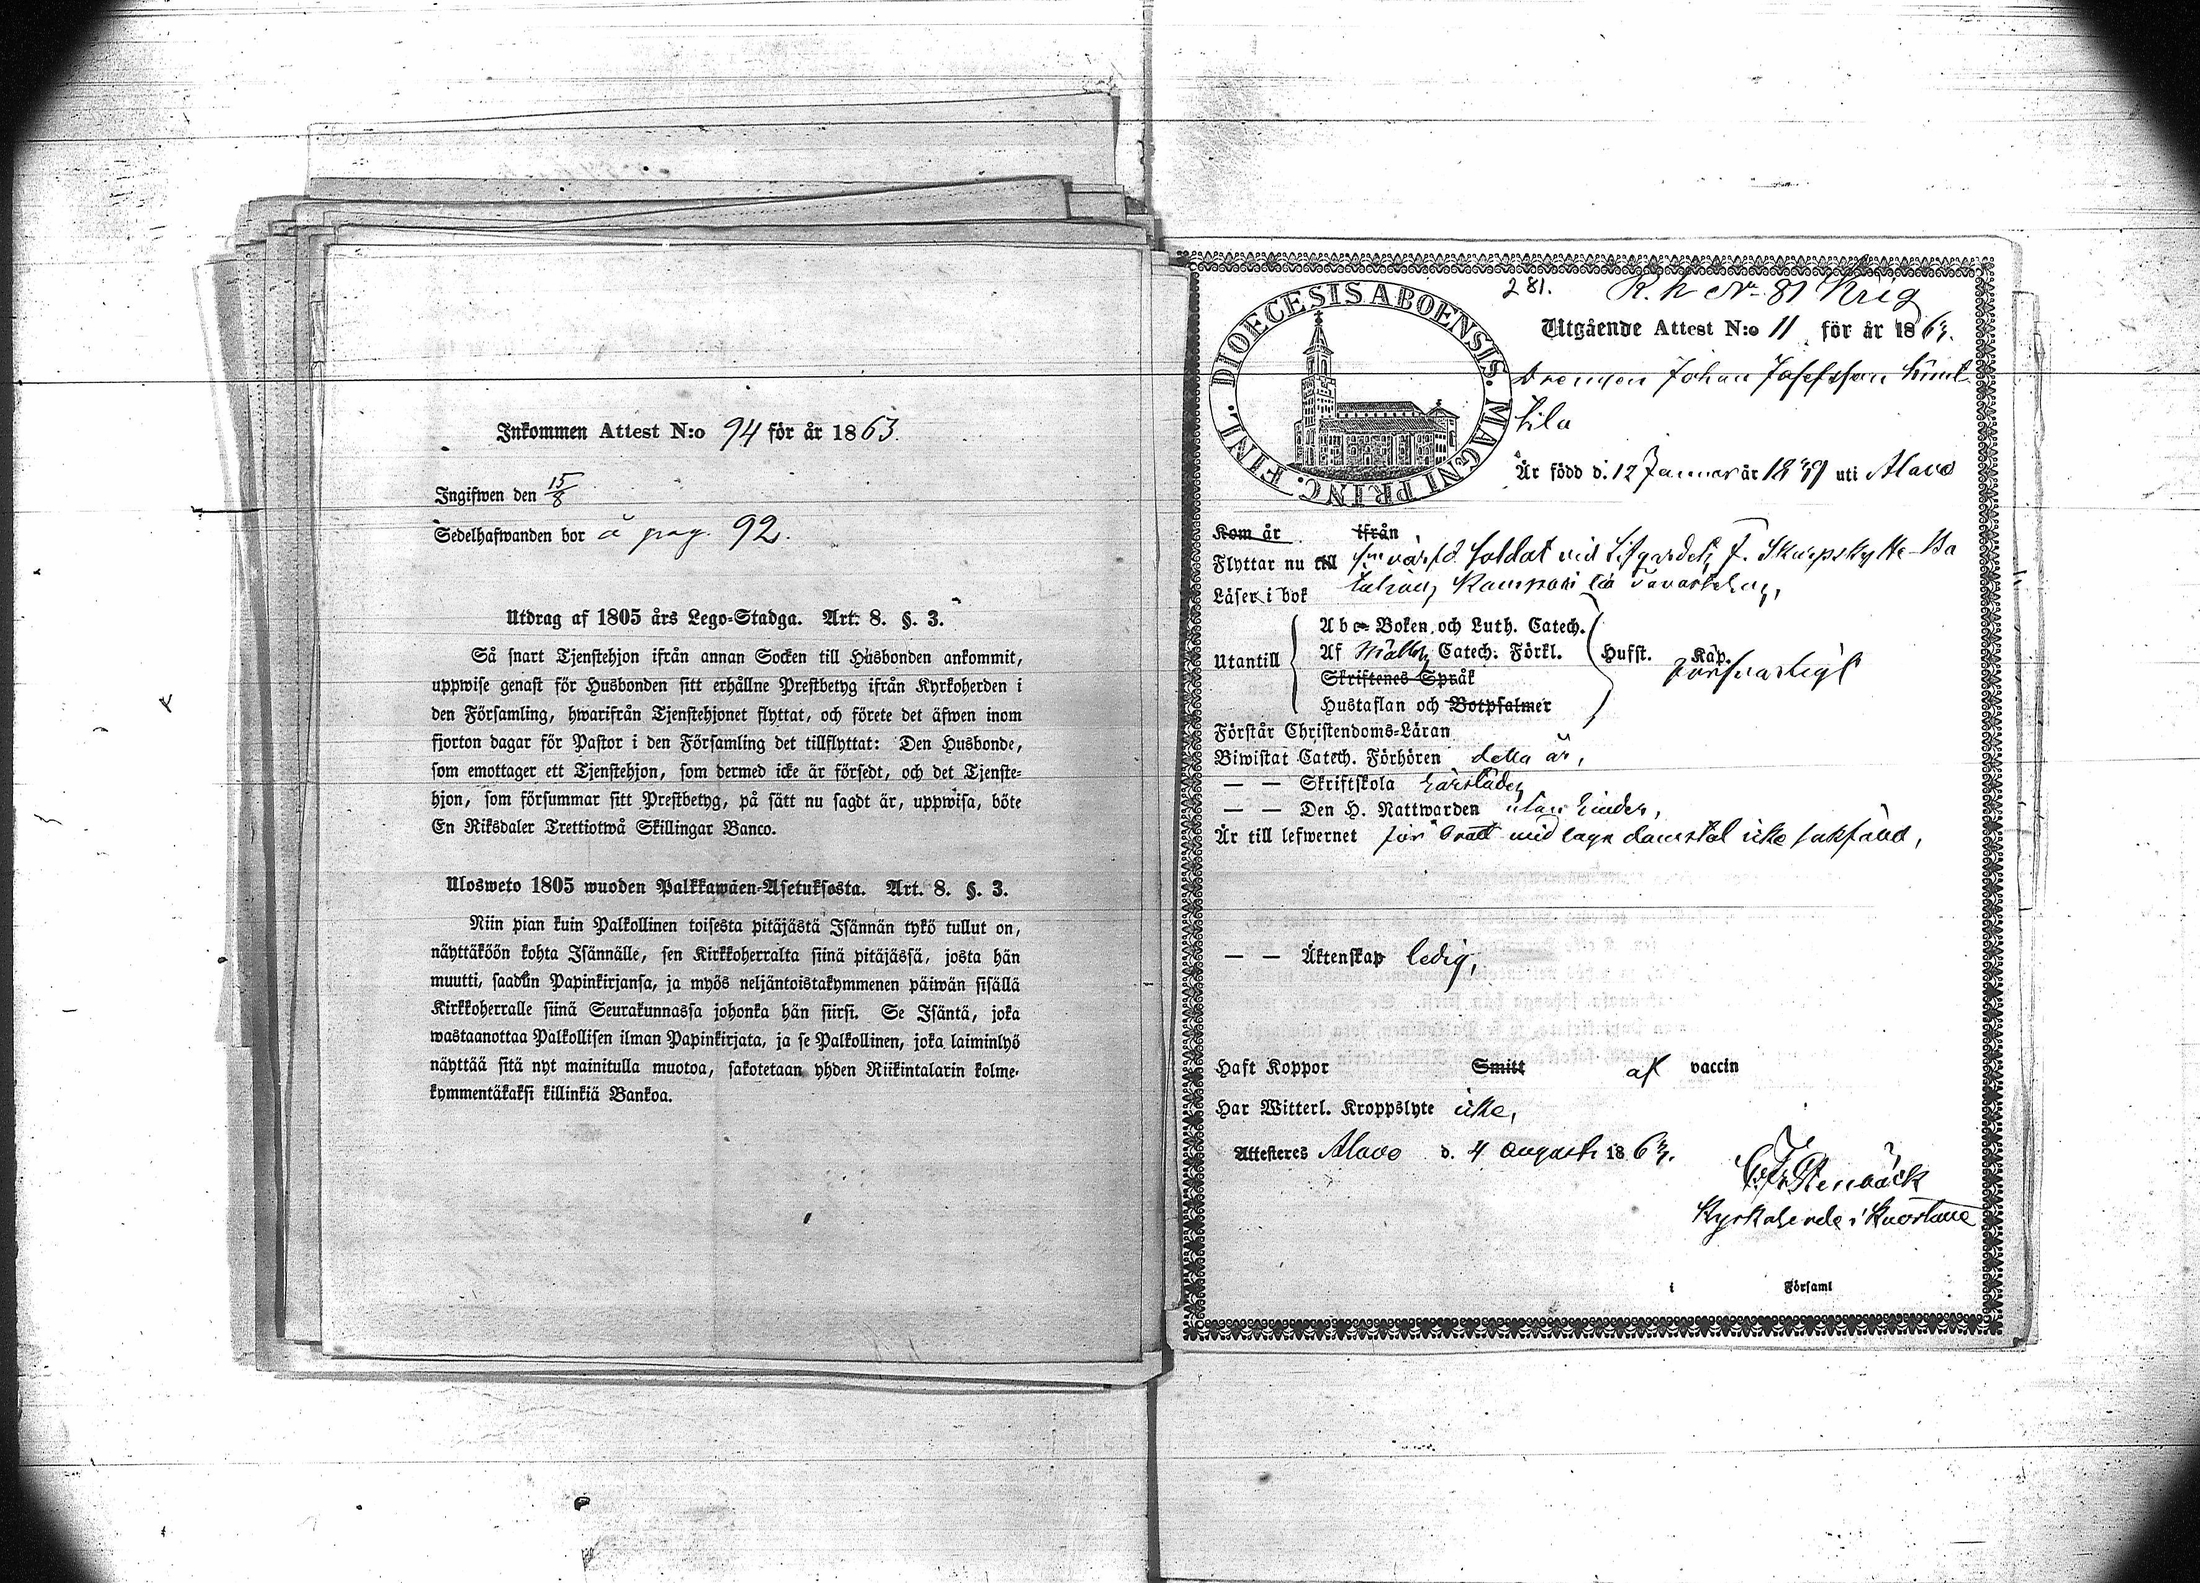 Inkommen Attest N:o 94 för år 1863.
Ingifwen den 15/8
Sedelhafwanden bor å pag. 92.
Utdrag af 1805 års Lego-Stadga. Art. 8. §. 3.
Så snart Tjenstehjon ifrån annan Socken till Husbonden ankommit,
uppwise genast för Husbonden sitt erhållne Prestbetyg ifrån Kyrkoherden i
den Församling, hwarifrån Tjenstehjonet flyttat, och förete det äfwen inom
fjorton dagar för Pastor i den Församling det tillflyttat: Den Husbonde,
som emottager ett Tjenstehjon, som dermed icke är försedt, och det Tjenste-
hjon, som försummar sitt Prestbetyg, på sätt nu sagdt är, uppwisa, böte
En Riksdaler Trettiotwå Skillingar Banco.
Ulosweto 1805 wuoden Palkkawäen-Asetuksesta. Art. 8. §. 3.
Niin pian kuin Palkollinen toisesta pitäjästä Isännän tykö tullut on,
näyttäköön kohta Isännälle, sen Kirkkoherralta siinä pitäjässä, josta hän
muutti, saadun Papinkirjansa, ja myös neljäntoistakymmenen päiwän sisällä
Kirkkoherralle siinä Seurakunnassa johonka hän siirsi. Se Isäntä, joka
wastaanottaa Palkollisen ilman Papinkirjata, ja se Palkollinen, joka laiminlyö
näyttää sitä nyt mainitulla muotoa, sakotetaan yhden Riikintalarin kolme-
kymmentäkaksi killinkiä Bankoa.
281. R. h N 81 Krig
DIOECESIS ABOENSIS. MAGNI PRINC. FINL.
Utgående Attest N:o 11 för år 1863.
Drengen Johan Josefsson
tila
Är född d. 12 Januar år 1839 uti Alavo
Kom år ifrån
Flyttar nu till soldat vid Lifgardets F. Skarpskytte-Ba
Läser i bok taljon, Kampani
Abc-Boken och Luth. Catech.
Utantill Af Catech. Förkl. Husst. Kap.
Skriftenes Språk försvarligt
Hustaflan och Botpsalmer
Förstår Christendoms-Läran
Biwistat Catech. Förhören detta år,
— — Skriftskola
— — Den H. Nattwarden utan hinder,
Är till lefwernet för brott wid lagn domstol icke sakfäld,
— — Äktenskap ledig,
Haft Koppor Smitt af vaccin
Har Witterl. Kroppslyte icke,
Attesteres Alavo d. 4 Augusti 1863.
Stenbäck
Kyrkoherde i Kuortane
i Församl